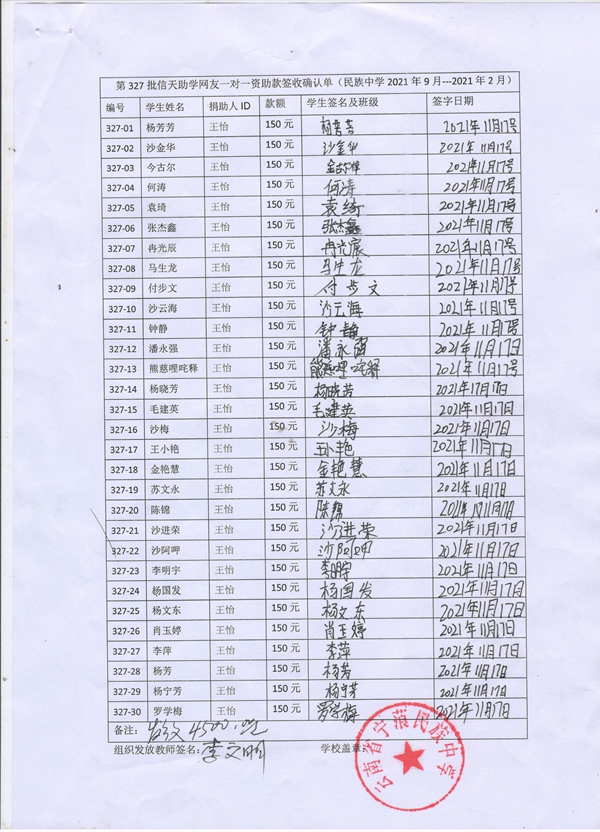 第 327 批信天助学网友一对一资助款签收确认单（民族中学 2021 年 9 月---2021 年 2 月）
编号 学生姓名 捐助人 ID 款额 学生签名及班级 签字日期
327-01 杨芳芳 王怡 150 元 杨芳芳 2021年11月17号
327-02 沙金华 王怡 150 元 沙金华 2021年11月17号
327-03 今古尔 王怡 150 元 2021年11月17号
327-04 何涛 王怡 150 元 何涛 2021年11月17号
327-05 袁琦 王怡 150 元 袁绮 2021年11月17号
327-06 张杰鑫 王怡 150 元 张杰鑫 2021年11月17号
327-07 冉光辰 王怡 150 元 冉光宸 2021年11月17号
327-08 马生龙 王怡 150 元 马生龙 2021年11月17号
327-09 付步文 王怡 150 元 付步文 2021年11月17号
327-10 沙云海 王怡 150 元 沙云海 2021年11月17号
327-11 钟静 王怡 150 元 钟静 2021年11月17号
327-12 潘永强 王怡 150 元 潘永强 2021年11月17日
327-13 熊慈哩咤释 王怡 150 元 熊慈哩咤释 2021年11月17号
327-14 杨晓芳 王怡 150 元 杨晓芳 2021年17月17日
327-15 毛建英 王怡 150 元 毛建英 2021年11月17日
327-16 沙梅 王怡 150 元 沙梅 2021年11月17日
327-17 王小艳 王怡 150 元 王小艳 2021年11月17日
327-18 金艳慧 王怡 150 元 金艳慧 2021年11月17日
327-19 苏文永 王怡 150 元 苏文永 2021年11月17日
327-20 陈锦 王怡 150 元 陈锦 2021年11月17日
327-21 沙进荣 王怡 150 元 沙进荣 2021年11月17日
327-22 沙阿呷 王怡 150 元 沙阿呷 2021年11月17日
327-23 李明宇 王怡 150 元 李明宇 2021年11月17日
327-24 杨国发 王怡 150 元 杨国发 2021年11月17日
327-25 杨文东 王怡 150 元 杨文东 2021年11月17日
327-26 肖玉婷 王怡 150 元 肖玉婷 2021年11月17日
327-27 李萍 王怡 150 元 李萍 2021年11月17日
327-28 杨芳 王怡 150 元 杨芳 2021年11月17日
327-29 杨宁芳 王怡 150 元 杨宁芳 2021年11月17日
327-30 罗学梅 王怡 150 元 罗学梅 2021年11月17日
备注： 4500.
组织发放教师签名： 李文明 学校盖章：
云南省宁蒗民族中学